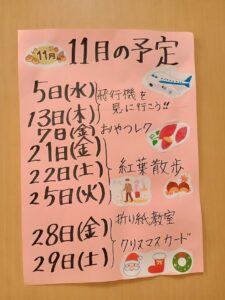 11月
11月の予定
5日(水)
飛行機を
13日(木)
見に行こう!!
7日(金)
おやつレク
21日(金)
22日(土)
紅葉散歩
25日(火)
28日(金)
折り紙教室
29日(土)
クリスマスカード